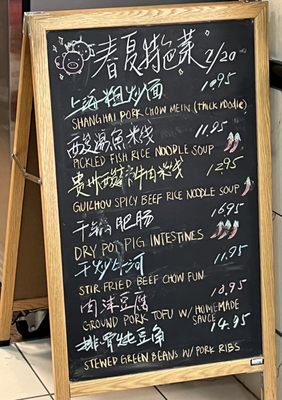 春夏特色菜 2/20
上海粗炒面 10.95
SHANGHAI PORK CHOW MEIN (THICK NOODLE)
酸汤鱼米线 11.95
PICKLED FISH RICE NOODLE SOUP
贵州 牛肉米线 12.95
GUIZHOU SPICY BEEF RICE NOODLE SOUP
干锅肥肠 16.95
DRY POT PIG INTESTINES
干炒牛河 11.95
STIR FRIED BEEF CHOW FUN
肉沫豆腐 .95
GROUND PORK TOFU W/ HOMEMADE SAUCE
排骨炖豆角 14.95
STEWED GREEN BEANS W/ PORK RIBS